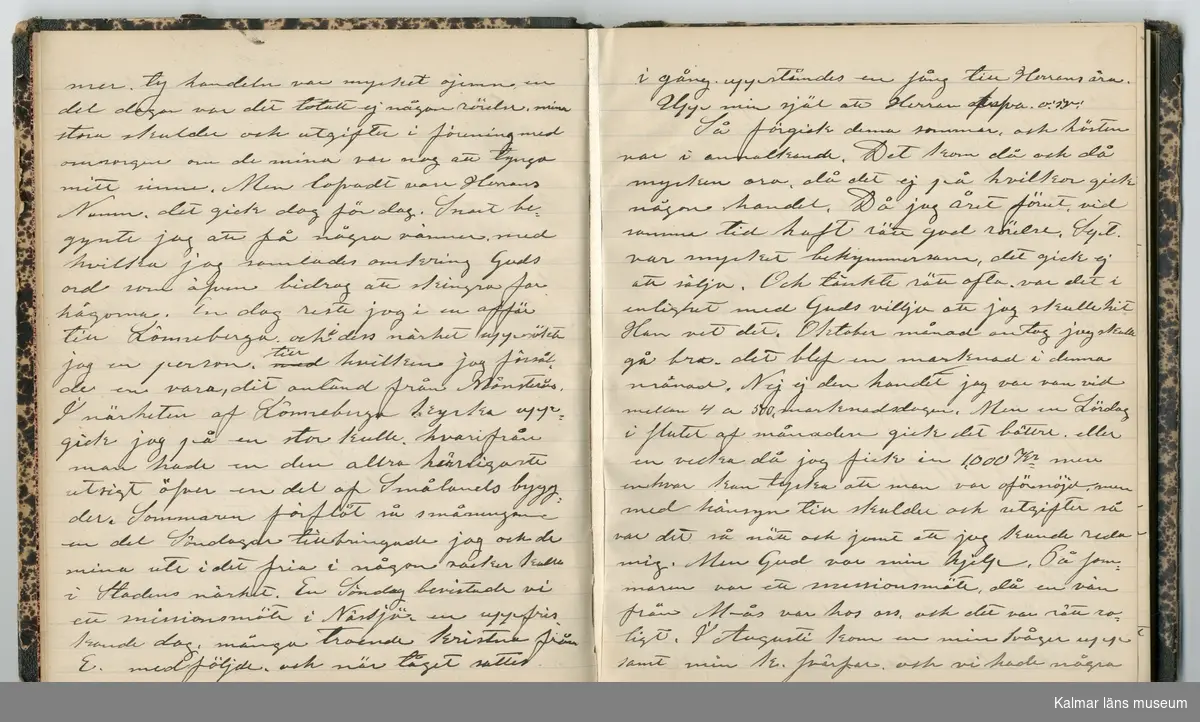 mer. ty handeln var mycket ojemn, en
del dagar var det totalt ej någon rörelse. mina
stora skulder och utgifter i förening med
omsorgen om de mina var nog att tynga
mitt sinne. Men lofvadt vare Herrans
Namn. det gick dag för dag. Snart be-
gynte jag att få några vänner, med
hvilka jag samlades omkring Guds
ord som äfven bidrog att skingra for
hågorna. En dag reste jag i en affär
till Lönneberga. och i dess närhet uppsökte
jag en person. till hvilken jag försål-
de en vara, dit anländ från Mönsterås.
I närheten af Lönneberga kyrka upp-
gick jag på en stor kulle. hvarifrån
man hade en den allra härligaste
utsigt öfver en del af Smålands bygg-
der. Sommaren förflöt så småningom
en del Söndagar tillbringade jag och de
mina ute i det fria i någon vacker kulle
i Stadens närhet. En Söndag bevistade vi
ett missionsmöte i Nässjö. en uppfris
kande dag. många troende kristna från
E. medföljde. och när tåget sattes
i gång. uppständes en sång till Herrans ära.
Upp min själ att Herran o.s.v.
Så förgick denna sommar, och hösten
var i annalkande. Det kom då och då
mycken oro, då det ej på hvilkor gick
någon handel. Då jag året förut, vid
samma tid haft rätt god rörelse. Sept.
var mycket bekymmersam, det gick ej
att sälja. Och tänkte rätt ofta, var det i
enlighet med Guds vilja att jag skulle hit
Han vet det. Oktober månad antog jag skulle
gå bra. det blef en marknad i denna
månad. Nej ej den handel jag var van vid
mellan 4 a 500, marknadsdagen. Men en Lördag
i slutet af månaden gick det bättre. eller
en vecka då jag fick in 1,000 Kr men
enhvar kan tycka att man var oförnöjd, men
med hänsyn till skulder och utgifter så
var det så nätt och jemt att jag kunde reda
mig. Men Gud var min hjelp. På som-
maren var ett missionsmöte, då en vän
från M-ås var hos oss. och det var rätt ro-
ligt. I Augusti kom en min svåger upp
samt min k. svärfar. och vi hade några
Kalmar läns museum